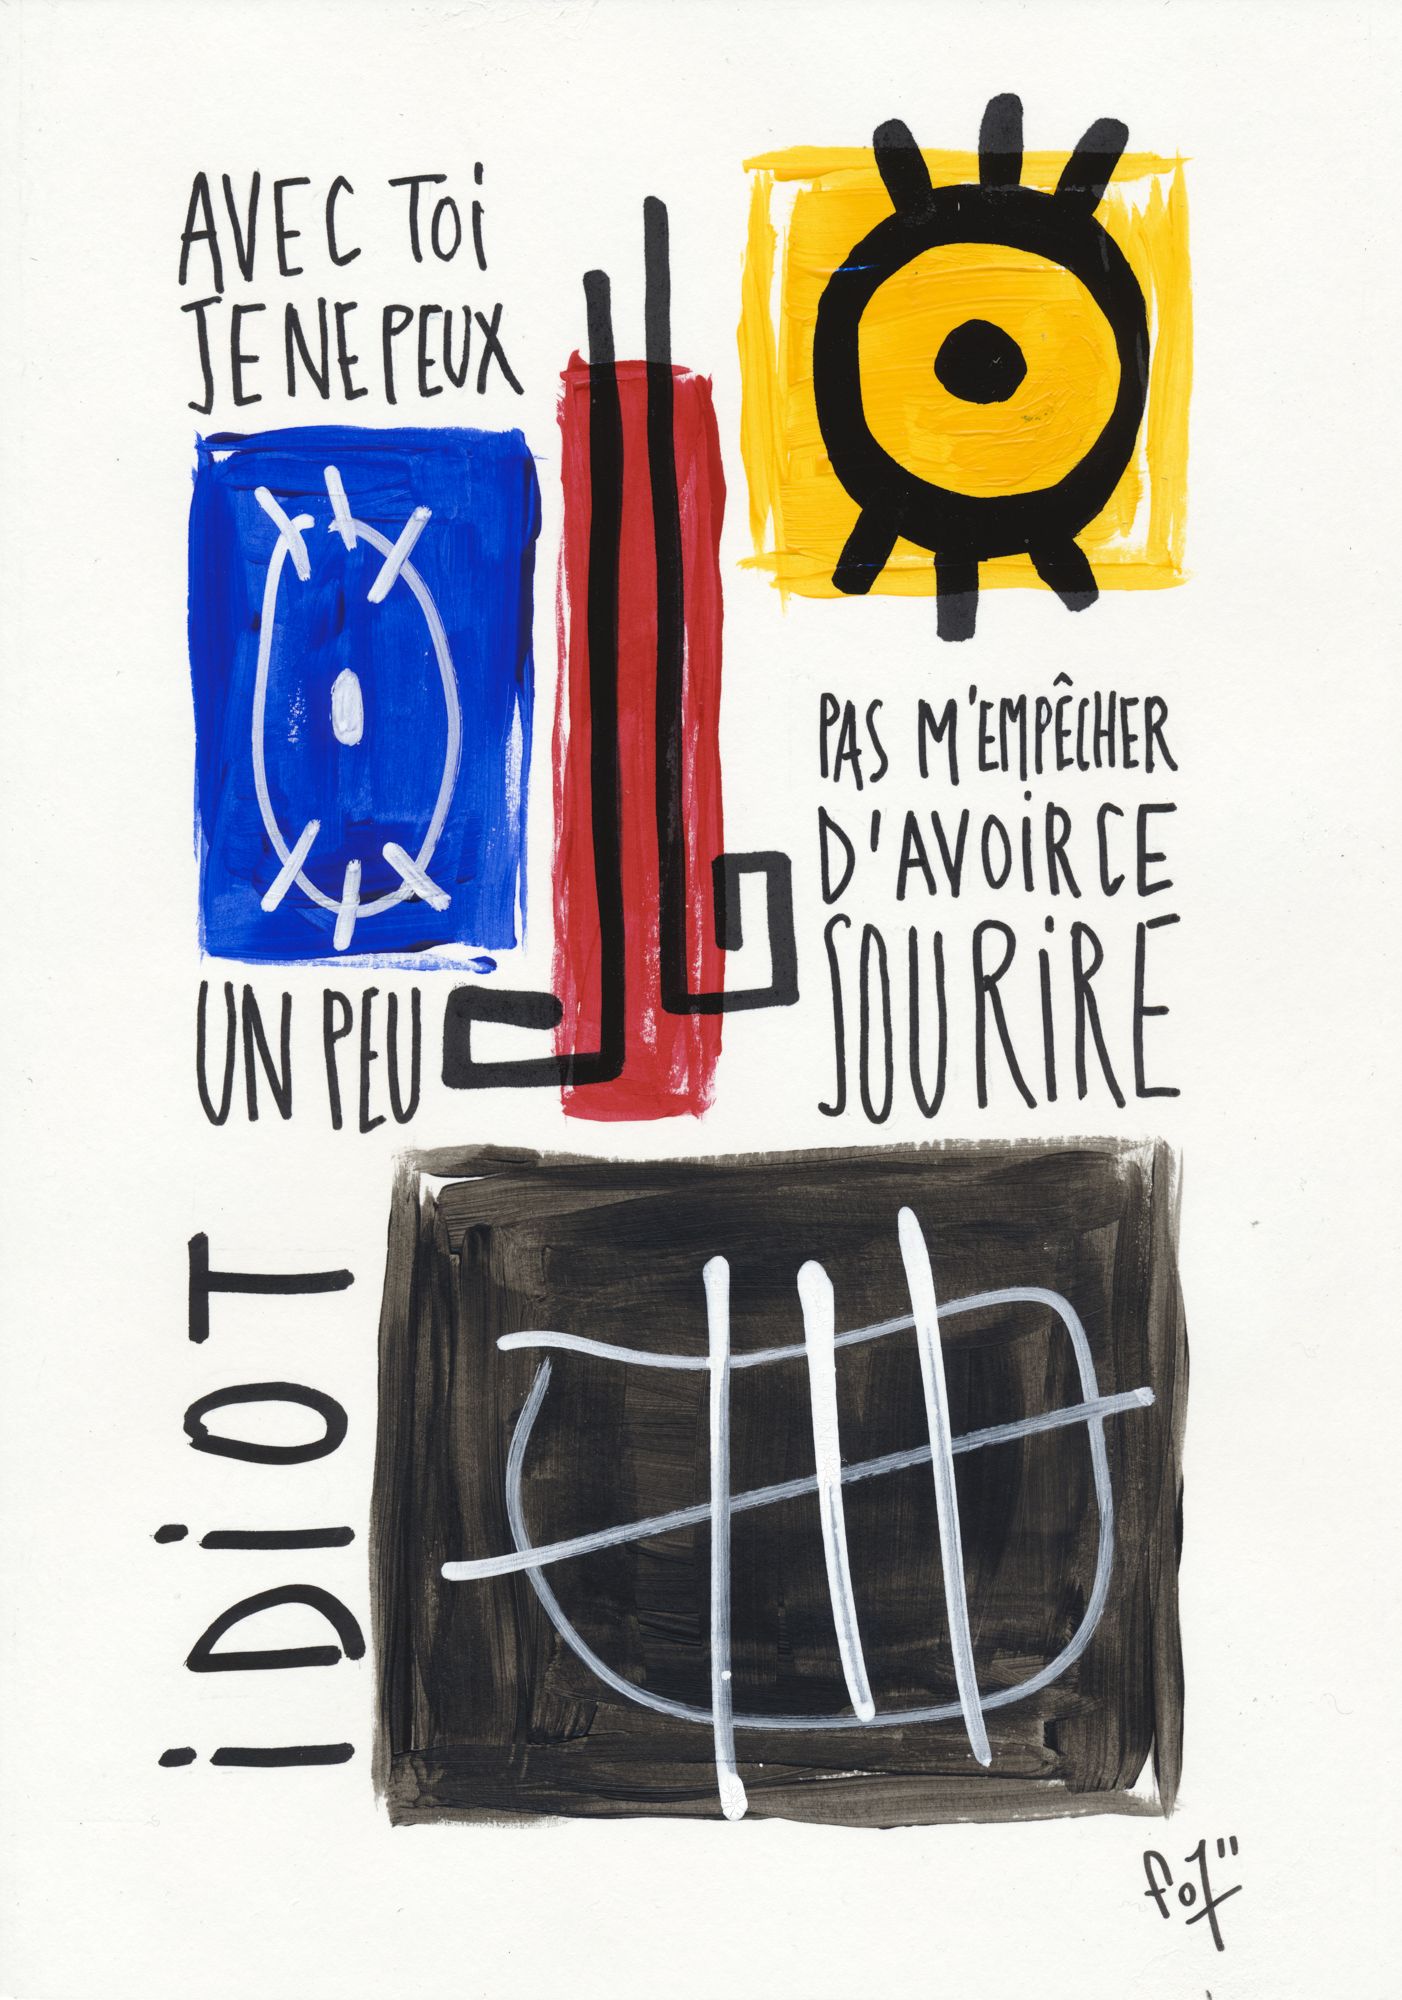 AVEC Toi
JE NE PEUX
PAS M'EMPÊCHER
D'AVOiR CE
SOURiRE
UN PEU
iDiOT